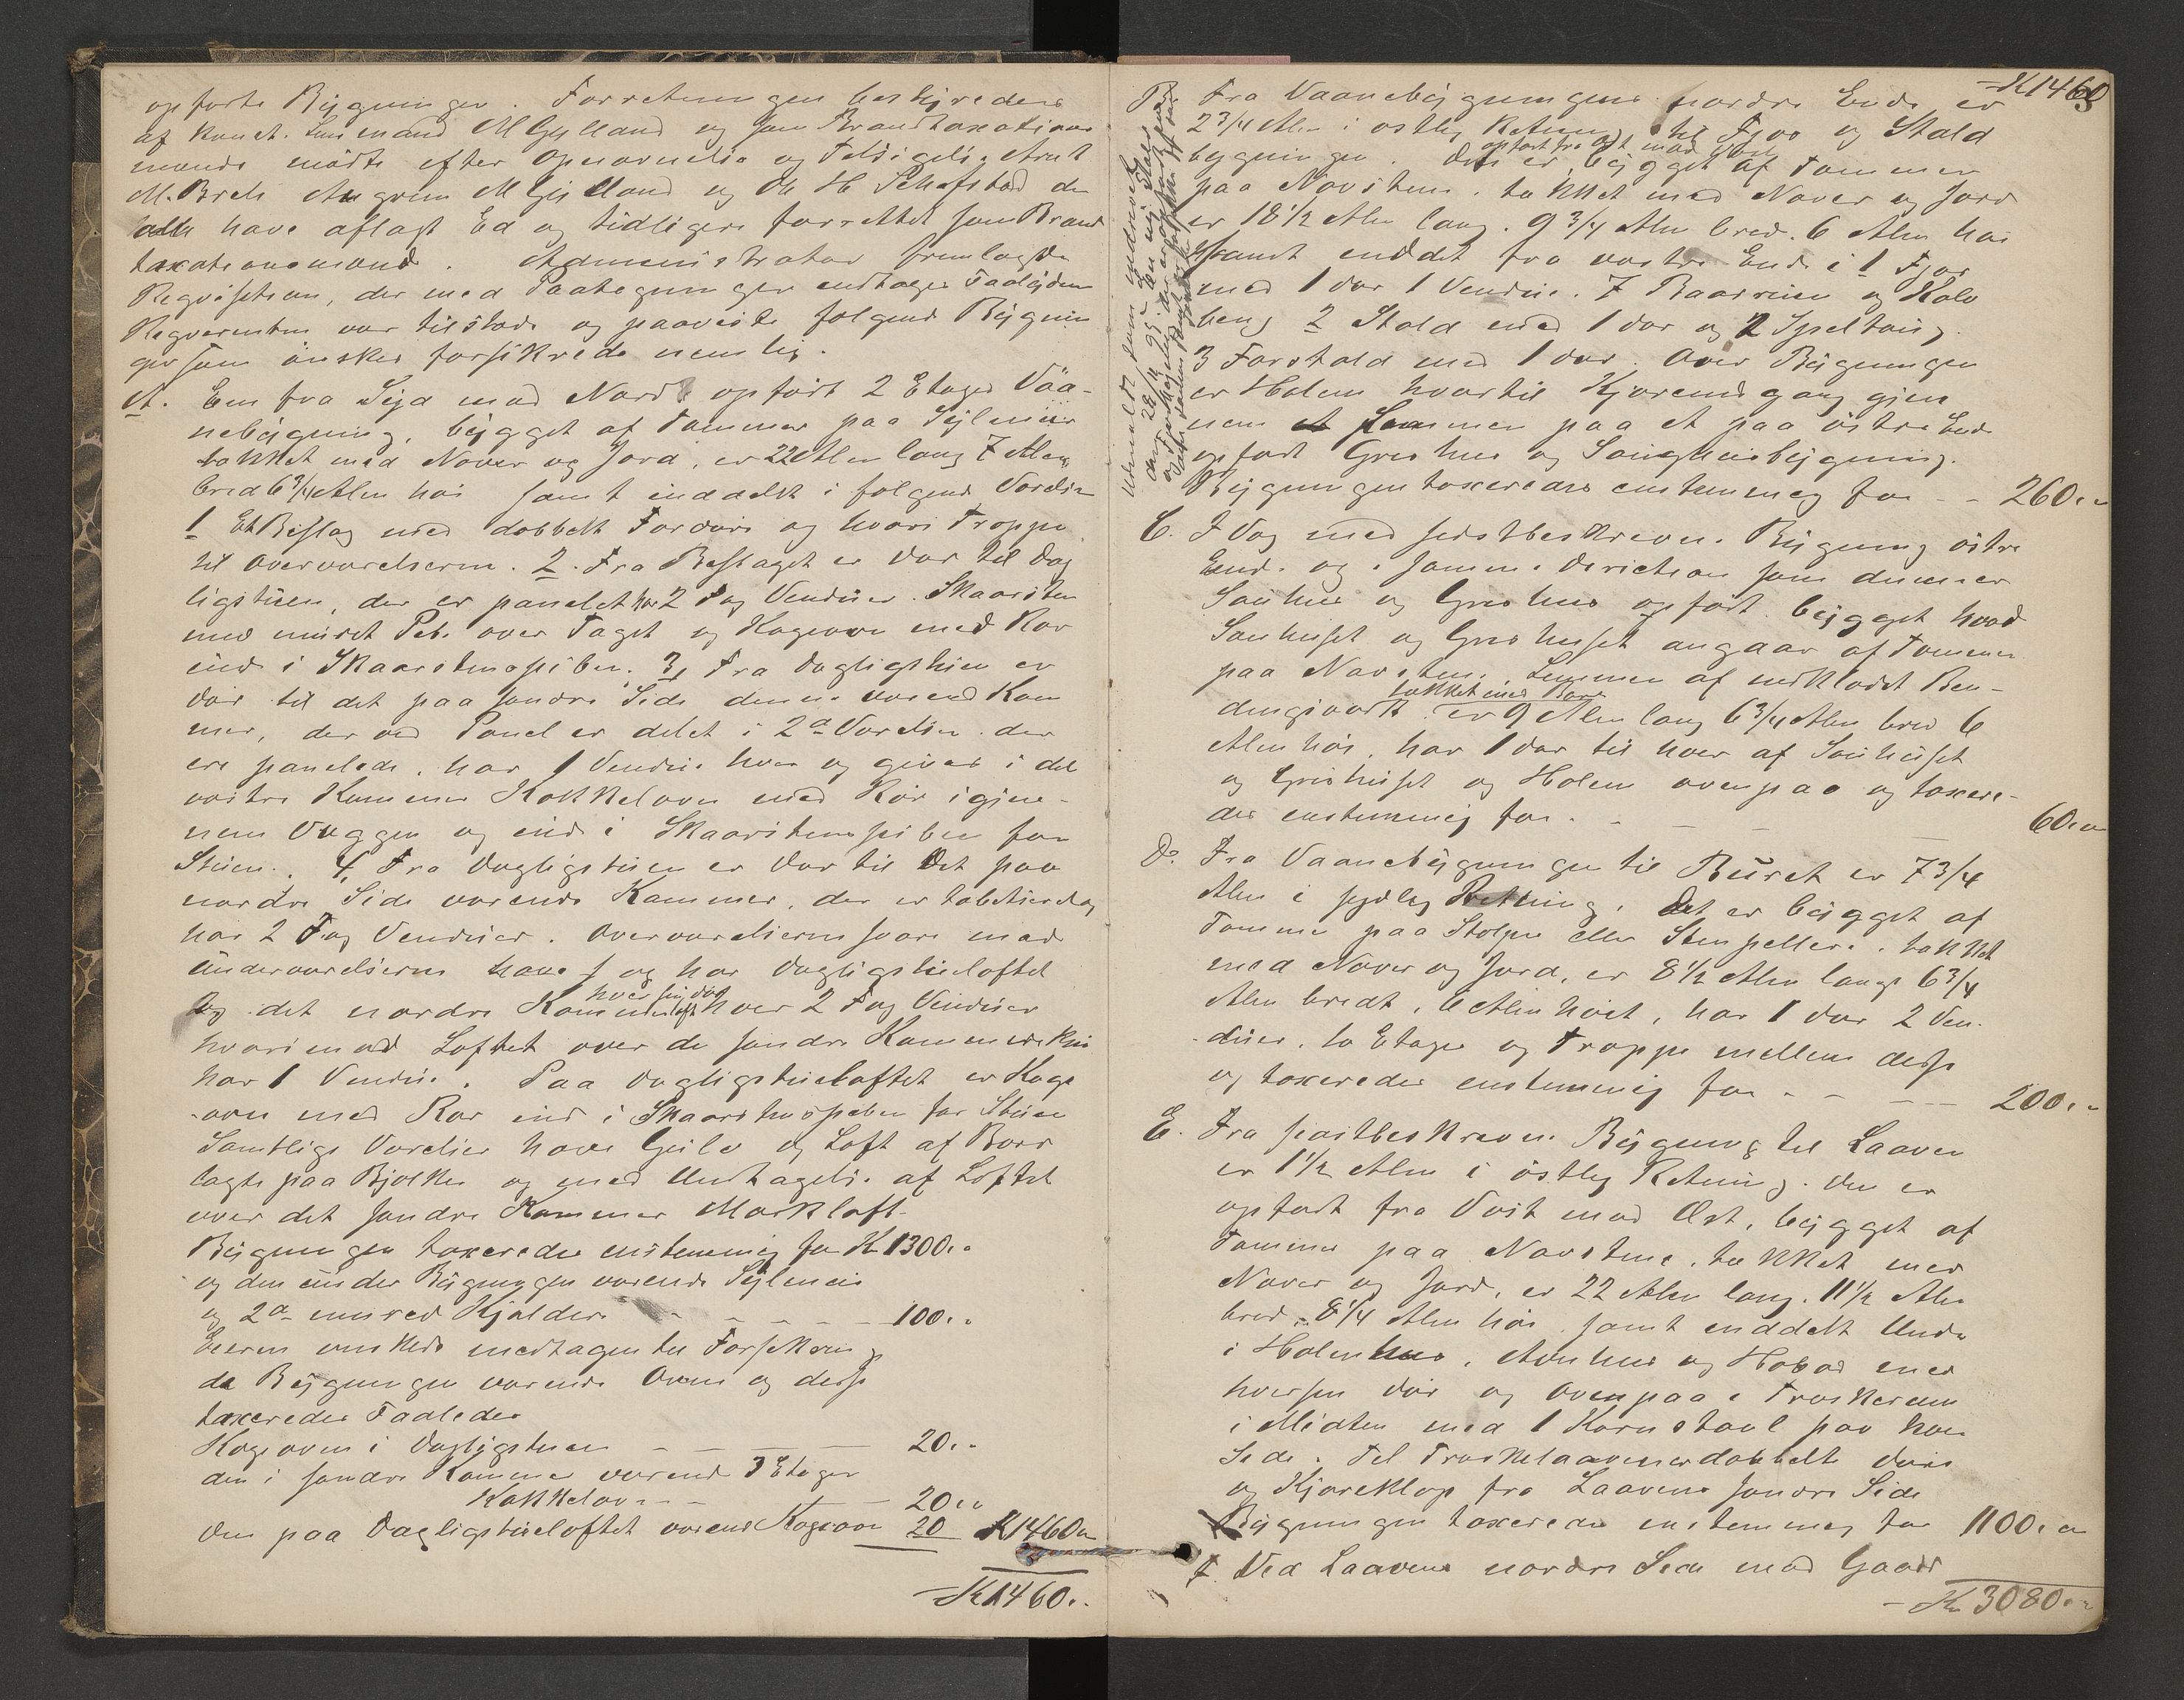 opførte Bygninger. Forretningen bestyredes
af const. Lensmand M Gylland og som Brandtaxations
mænd mødte efter Opnævnelse og Tilsigelse
M. Gylland og H. de
alle have aflagt Ed og tidligere forrettet som Brand
taxationsmænd. Administrator fremlagde
Reqvisition, der med Paategninger indtages
Reqverenten var tilstede og paaviste følgende Bygnin
ger som ønskes forsikrede nemlig.
A. En fra Syd mod Nord opført 2 Etages Vaa-
nebygning, bygget af Tømmer paa Sylmuur
tækket med Næver og Jord, er 22 Alen lang 7 Alen
bred 6 3/4 Alen høi samt inddelt i følgende Værelser
1 Et Bislag med dobbelt Fordør og hvori Trappe
til Overværelserne. 2. Fra Bislaget er Dør til Dag
ligstuen, der er panelet har 2 Fag Vinduer. Skaarsten
med muret Pibe over Taget og Kogeovn med Rør
ind i Skaarstenspiben. 3, Fra Dagligstuen er
Dør til det paa søndre Side denne værend Kam
mer, der ved Panel er delet i 2de Værelser der
ere panelede, har 1 Vindue hver og gives i det
vestre Kammer Kakkelovn med Rør igjen-
nem Væggen og ind i Skaarstenspiben for
Stuen. 4, Fra Dagligstuen er Dør til Det paa
nordre Side værende Kammer, der er
har 2 Fag Vinduer. Overværelserne svare mod
Underværelserne have og har Dagligstueloftet
og det nordre Kammerloft hver sin Dør hver 2 Fag Vinduer
hvorimod Loftet over de søndre Kammere kun
har 1 Vindue. Paa Dagligstueloftet er Koge
ovn med Rør ind i Skaarstenspiben for Stuen
Samtlige Værelser have Gulv og Loft af Bord
lagte paa Bjælker og med Undtagelse af Loftet
over det søndre Kammer Mørkloft.
Bygningen taxeredes enstemmig for K 1300. "
og den under Bygningen værende Sylmuur
og 2de mured Kjælder - - - - - 100. "
Eieren ønskede medtagen til Forsikring
de Bygningen værende Ovne og disse
taxeredes saaledes
Kogeovn i Dagligstuen - - - 20. "
den i søndre Kammer værende 3 Etages
Kakkelovn - - - 20 "
den paa Dagligstueloftet værend Kogeovn 20 K 1460 "
K 1460. "
K 1460
B. Fra Vaanebygningens nordre Ende er
2 3/4 Alen i østlig Retning til Fjøs og Stald
bygningen. Den er opført fra Øst mod Vest bygget af Tømmer
paa Navsteen. tækket med Næver og Jord
er 18 1/2 Alen lang. 9 3/4 Alen bred. 6 Alen høi
samt inddelt fra vestre Ende i 1 Fjøs
med 1 Dør 1 Vindue. 7 Baasrum og Kalv
beng 2 Stald med 1 Dør og 2 Spiltaug.
3 Forstald med 1 Dør. Over Bygningen
er Holem hvortil Kjørendgang gjen
nem Lemmen paa et paa østre Ende
opført Grishus og Sauehusbygning.
Bygningen taxeredes enstemmig for - - 260. "
C. I Væg med sidstbeskrevne Bygnings østre
Ende og i samme Direction som denne er
Sauhus og Grishus opført bygget hvad
Sauhuset og Grishuset angaar af Tømmer
paa Navsteen. Lemmen af
tækket med Bord er 9 Alen lang 6 3/4 Alen bred 6
Alen høi, har 1 Dør til hver af Sauhuset
og Grishuset og Holem ovenpaa og taxere-
des enstemmig for - - - - 60 "
D. Fra Vaanebygningen til Buret er 7 3/4
Alen i sydlig Retning. Det er bygget af
Tømmer paa Stolper eller Steenpillere. tækket
med Næver og Jord, er 8 1/2 Alen langt 6 3/4
Alen bredt, 6 Alen høit, har 1 Dør 2 Vin-
duer. to Etager og Trappe mellem disse
og taxeredes enstemmig for - - - - 200. "
E. Fra sidstbeskrevne Bygning til Laaven
er 1 1/2 Alen i østlig Retning. Den er
opført fra Vest mod Øst, bygget af
Tømmer paa Navstene. tækket med
Næver og Jord, er 22 Alen lang. 11 1/2 Alen
bred, 8 1/4 Alen høi samt inddelt Under
i Holemhus, Avnhus og med
hver sin Dør og Ovenpaa i Træskerum
i Midten med 1 Kornstaal paa hver
Side. Til Træskelaaven er dobbelt Dør
og Kjøreklop fra Laavens søndre Side
Bygningen taxeredes enstemmig for 1100. "
F. Ved Laavens nordre Side mod Gaard
K 3080. "